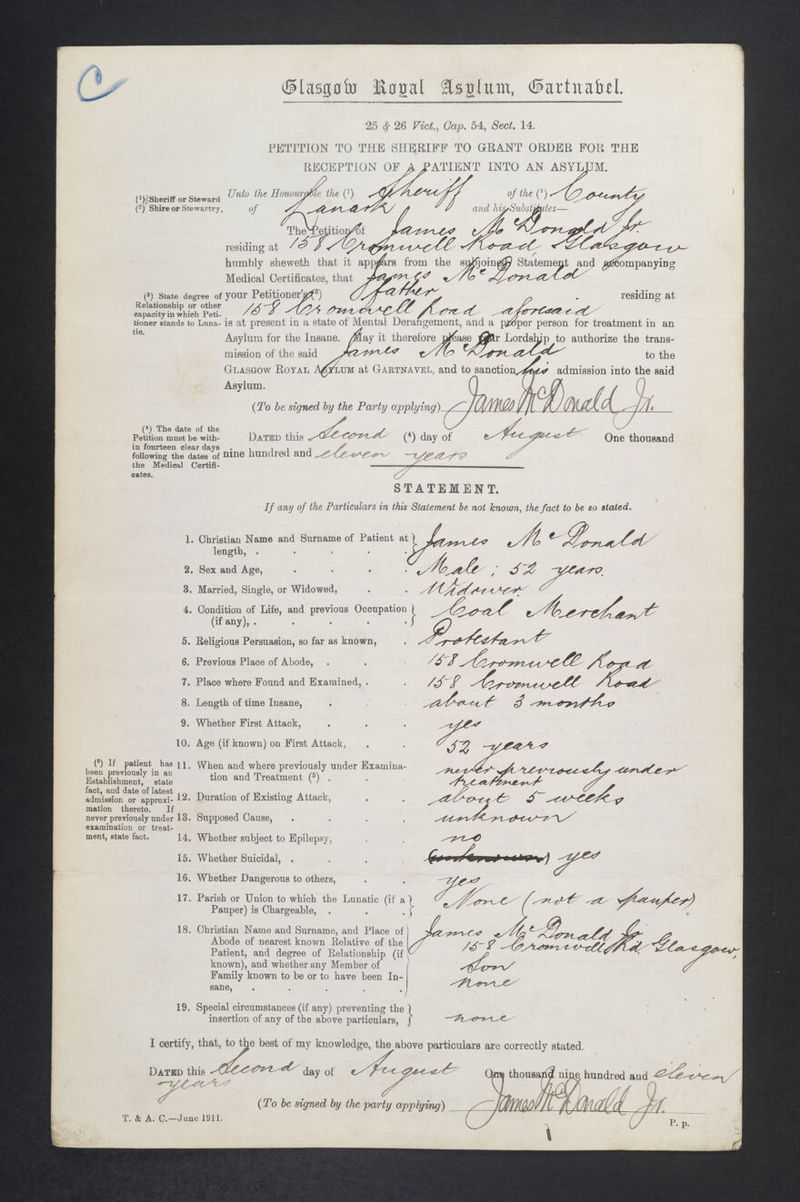 C
Glasgow Royal Asylum, Gartnabel.
25 & 26 Vict., Cap. 54, Sect. 14.
PETITION TO THE SHERIFF TO GRANT ORDER FOR THE
RECEPTION OF A PATIENT INTO AN ASYLUM.
(¹) Sheriff or Steward
(²) Shire or Stewartry,
Unto the Honourable the (¹) Sheriff of the (²) County
of Lanark and his Substitutes—
The Petition of James McDonald Jr.
residing at 158 Cromwell Road Glasgow
humbly sheweth that it appears from the subjoined Statement and accompanying
Medical Certificates, that James McDonald
(³) State degree of
Relationship or other
capacity in which Peti-
tioner stands to Luna-
tic.
your Petitioner's (³) father residing at
158 Cromwell Road aforesaid
is at present in a state of Mental Derangement, and a proper person for treatment in an
Asylum for the Insane. May it therefore please your Lordship to authorize the trans-
mission of the said James McDonald to the
GLASGOW ROYAL ASYLUM at GARTNAVEL, and to sanction his admission into the said
Asylum.
(To be signed by the Party applying) James McDonald Jr.
(⁴) The date of the
Petition must be with-
in fourteen clear days
following the dates of
the Medical Certifi-
cates.
DATED this Second (⁴) day of August One thousand
nine hundred and eleven years
STATEMENT.
If any of the Particulars in this Statement be not known, the fact to be so stated.
1. Christian Name and Surname of Patient at
length, . . . . . } James McDonald
2. Sex and Age, . . . . Male ; 52 years.
3. Married, Single, or Widowed, . . Widower
4. Condition of Life, and previous Occupation
(if any), . . . . . } Coal Merchant
5. Religious Persuasion, so far as known, . Protestant
6. Previous Place of Abode, . . 158 Cromwell Road
7. Place where Found and Examined, . . 158 Cromwell Road
8. Length of time Insane, . . about 3 months
9. Whether First Attack, . . . yes
10. Age (if known) on First Attack, . . 52 years
(⁵) If patient has
been previously in an
Establishment, state
fact, and date of latest
admission or approxi-
mation thereto. If
never previously under
examination or treat-
ment, state fact.
11. When and where previously under Examina-
tion and Treatment (⁵) . . never previously under
treatment
12. Duration of Existing Attack, . . about 5 weeks
13. Supposed Cause, . . . . unknown
14. Whether subject to Epilepsy, . . no
15. Whether Suicidal, . . . . (unknown) yes
16. Whether Dangerous to others, . . yes
17. Parish or Union to which the Lunatic (if a
Pauper) is Chargeable, . . . } None (not a pauper)
18. Christian Name and Surname, and Place of
Abode of nearest known Relative of the
Patient, and degree of Relationship (if
known), and whether any Member of
Family known to be or to have been In-
sane, . . . . . .
James McDonald Jr
158 Cromwell Rd. Glasgow,
Son
none
19. Special circumstances (if any) preventing the
insertion of any of the above particulars, } none
I certify, that, to the best of my knowledge, the above particulars are correctly stated.
DATED this Second day of August One thousand nine hundred and eleven
years
(To be signed by the party applying) James McDonald Jr.
T. & A. C.—June 1911.
P. p.